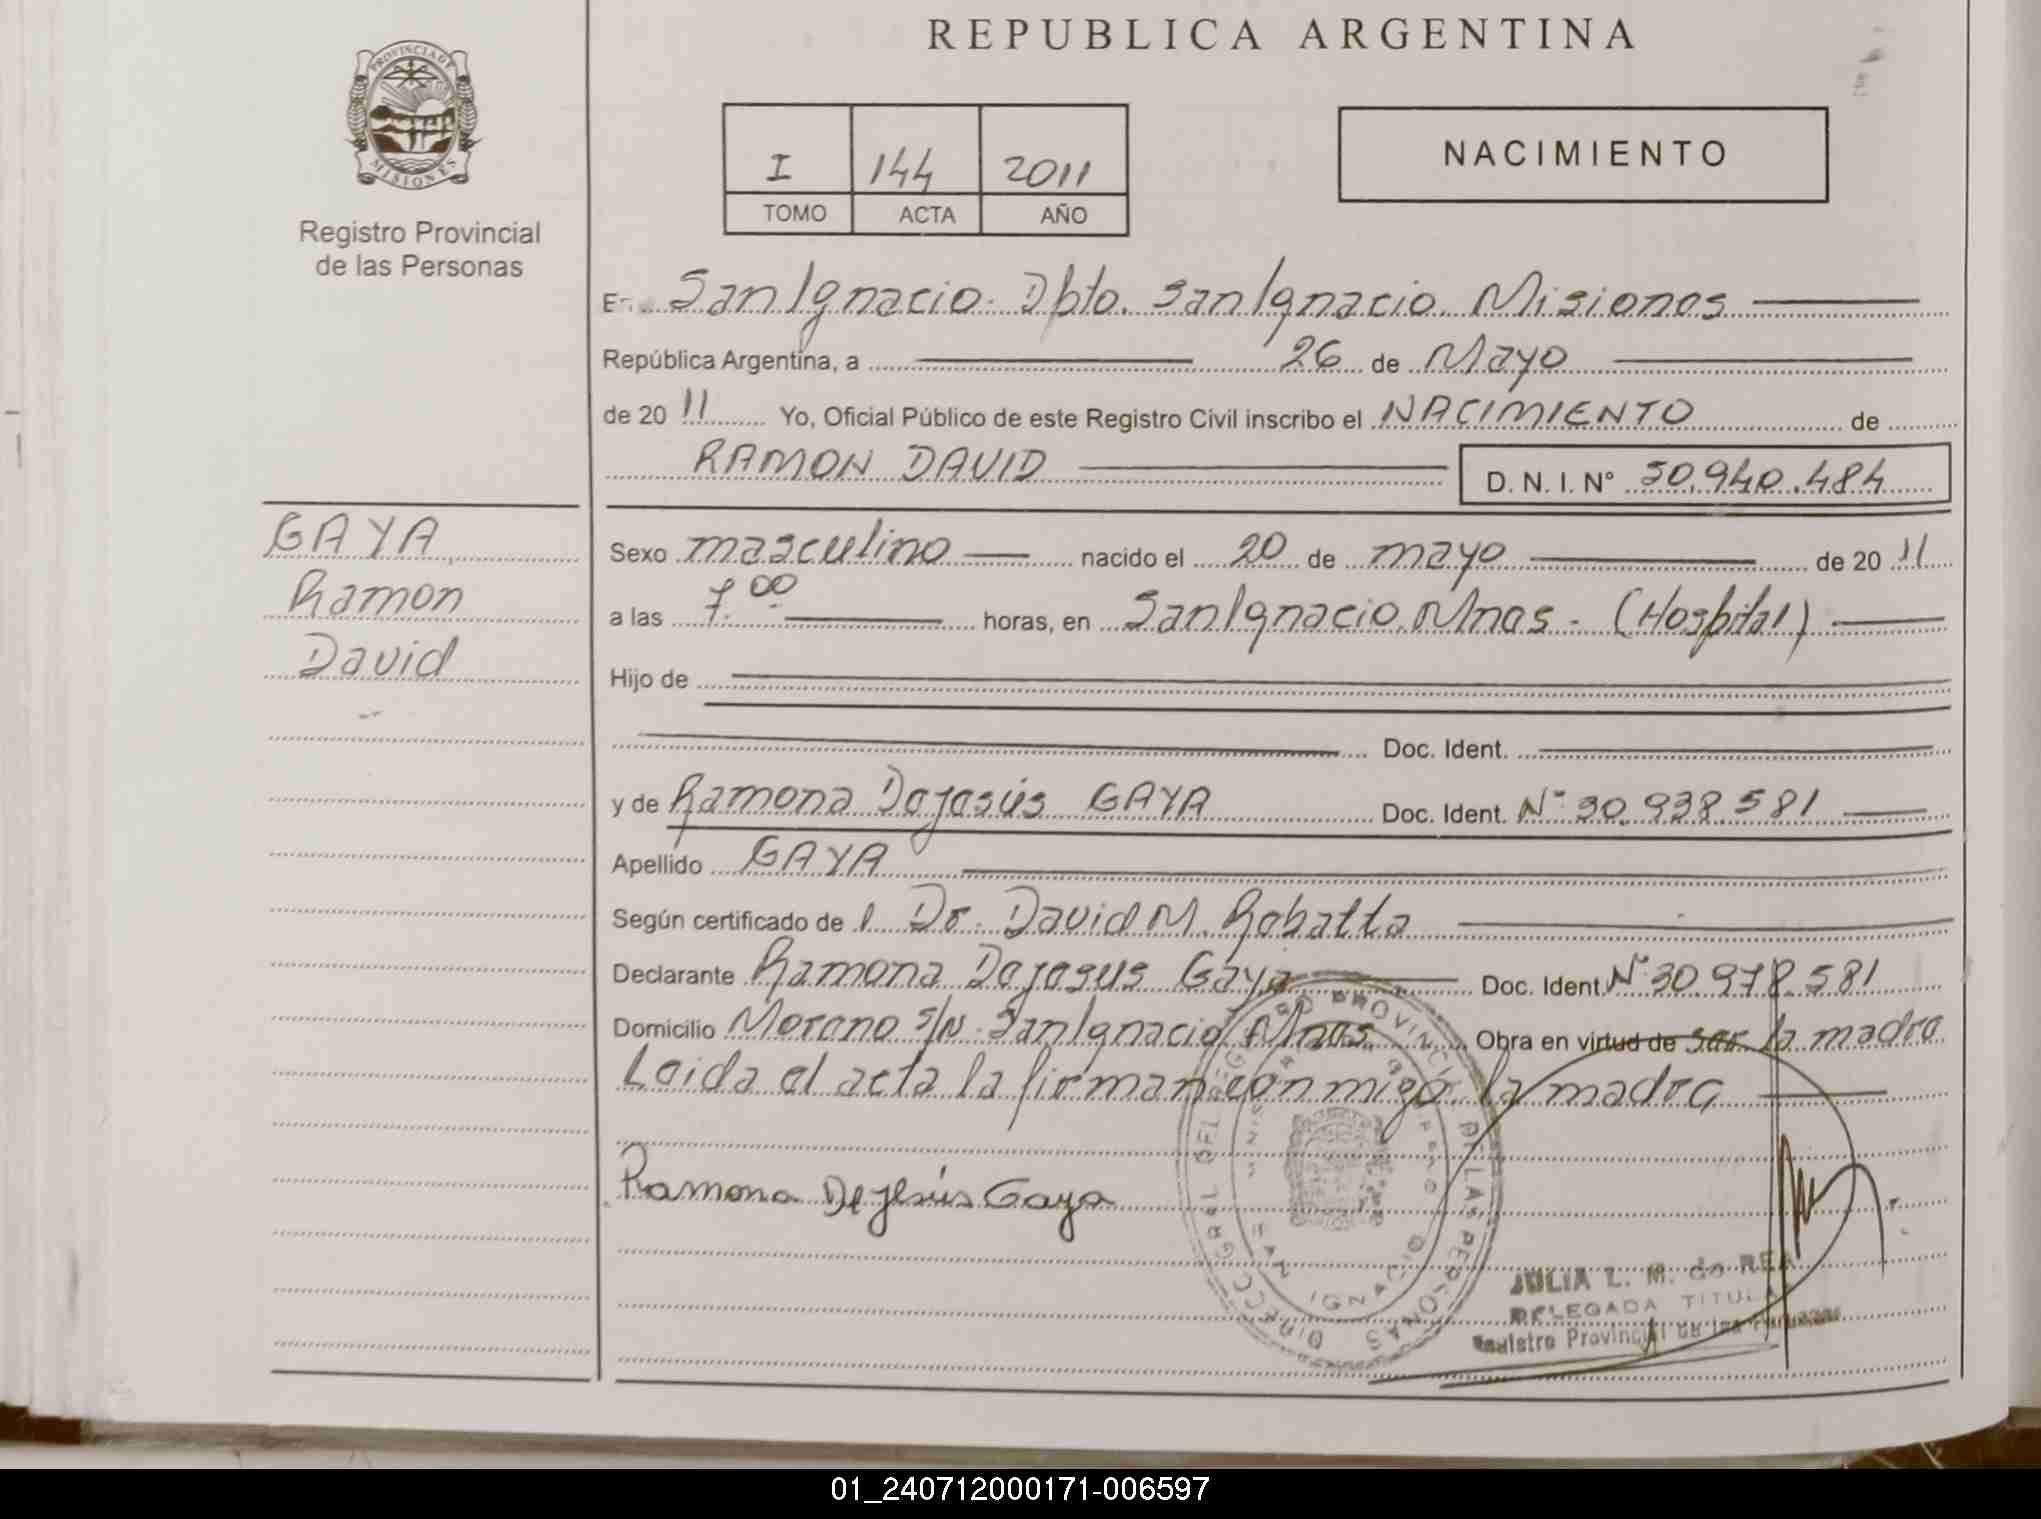 REPUBLICA ARGENTINA
PROVINCIA DE
MISIONES
Registro Provincial
de las Personas
I 144 2011
TOMO ACTA AÑO
NACIMIENTO
En San Ignacio. Dpto. San Ignacio. Misiones
República Argentina, a 26 de Mayo
de 20 11 Yo, Oficial Público de este Registro Civil inscribo el NACIMIENTO de
RAMON DAVID D. N. I. N° 50.940.484
GAYA
Ramon
David
Sexo masculino nacido el 20 de mayo de 20 11
a las 7.00 horas, en San Ignacio. Mnes - (Hospital)
Hijo de
Doc. Ident.
y de Ramona Dejesús GAYA Doc. Ident. N° 30.938.581
Apellido GAYA
Según certificado de l Dr. David M. Robatta
Declarante Ramona Dejesus Gaya Doc. Ident. N° 30.978.581
Domicilio Moreno S/N. San Ignacio Mnes. Obra en virtud de ser la madre
Leida el acta la firman conmigo la madre
Ramona De Jesús Gaya
DIRECC. GRAL DEL REGISTRO PROVINCIAL DE LAS PERSONAS
SAN IGNACIO
JULIA L. M. de REA
DELEGADA TITULAR
Registro Provincial de las Personas
01_240712000171-006597